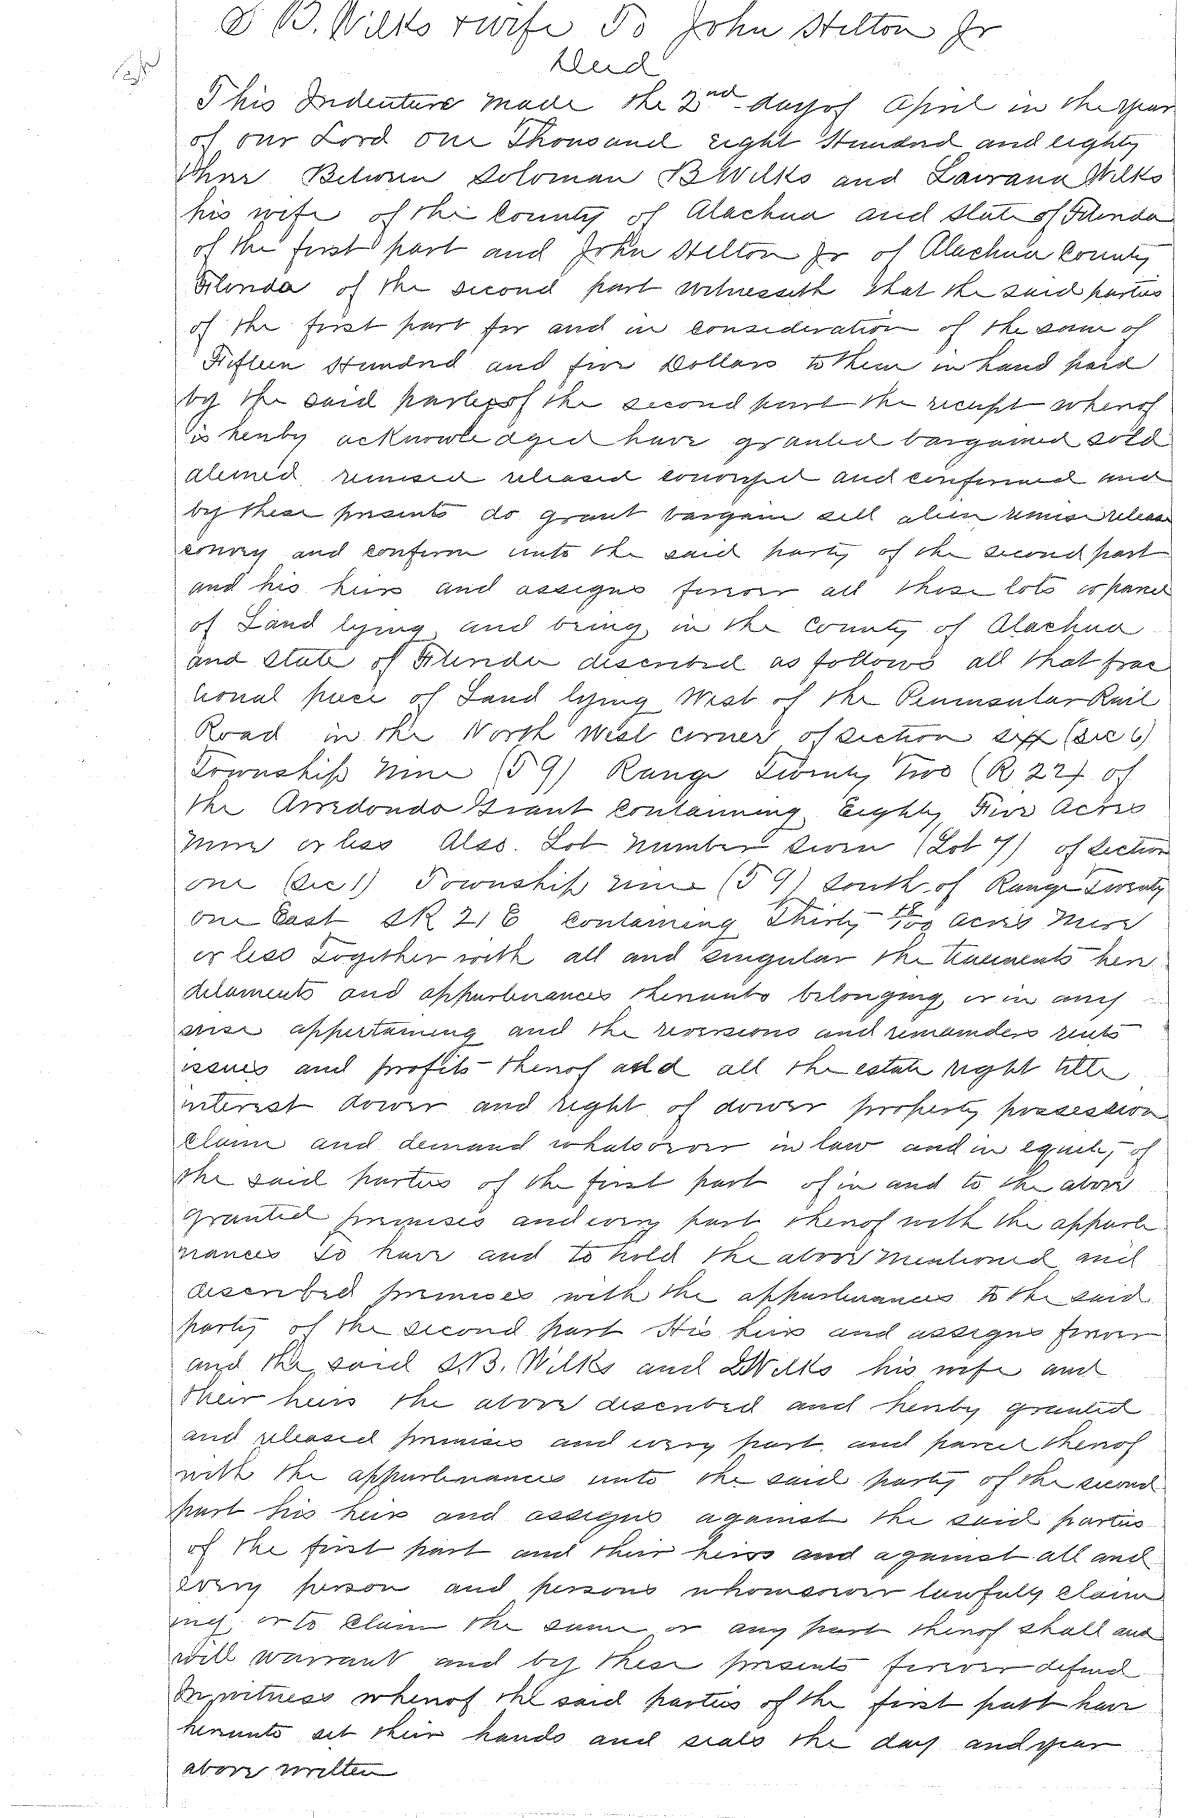 S B. Wilks & wife To John Hilton Jr
Deed
This Indenture made the 2nd day of April in the year
of our Lord One Thousand Eight Hundred and eighty
three Between Soloman B Wilks and Laurana Wilks
his wife of the County of Alachua and State of Florida
of the first part and John Hilton Jr of Alachua County
Florida of the second part witnesseth that the said parties
of the first part for and in consideration of the sum of
Fifteen Hundred and five Dollars to them in hand paid
by the said parties of the second part the receipt whereof
is hereby acknowledged have granted bargained sold
aliened remised released conveyed and confirmed and
by these presents do grant bargain sell alien remise release
convey and confirm unto the said party of the second part
and his heirs and assigns forever all those lots or parcel
of Land lying and being in the County of Alachua
and State of Florida described as follows all that frac
tional piece of Land lying West of the Peninsular Rail
Road in the North West corner of section six (Sec 6)
Township Nine (T 9) Range Twenty Two (R 22) of
the Arredondo Grant Containing Eighty Five Acres
More or less Also. Lot Number Seven (Lot 7) of Section
one (Sec 1) Township nine (T 9) South of Range Twenty
one East SR 21 E containing Thirty 18/100 acres More
or less Together with all and singular the tenements here
ditaments and appurtenances thereunto belonging or in any
wise appertaining and the reversions and remainders rents
issues and profits thereof and all the estate right title
interest dower and right of dower property possession
claim and demand whatsoever in law and in equity of
the said parties of the first part of in and to the above
granted premises and every part thereof with the appurte
nances To have and to hold the above mentioned and
described premises with the appurtenances to the said
party of the second part His heirs and assigns forever
and the said S.B. Wilks and L Wilks his wife and
their heirs the above described and hereby granted
and released premises and every part and parcel thereof
with the appurtenances unto the said party of the second
part his heirs and assigns against the said parties
of the first part and their heirs and against all and
every person and persons whomsoever lawfuly claim
ing or to claim the same or any part thereof shall and
will warrant and by these presents forever defend
In witness whereof the said parties of the first part have
hereunto set their hands and seals the day and year
above written